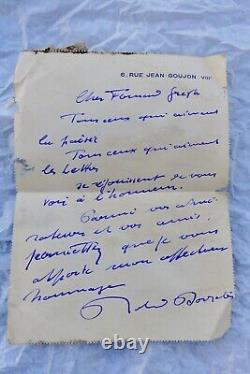 6, RUE JEAN GOUJON. VIIIe
Cher Fernand Gregh
Tous ceux qui aiment
la poésie
Tous ceux qui aiment
les Lettres
se réjouissent de vous
voir à l'honneur.
Parmi vos admi-
rateurs et vos amis,
permettez que je vous
apporte mon affectueux
hommage